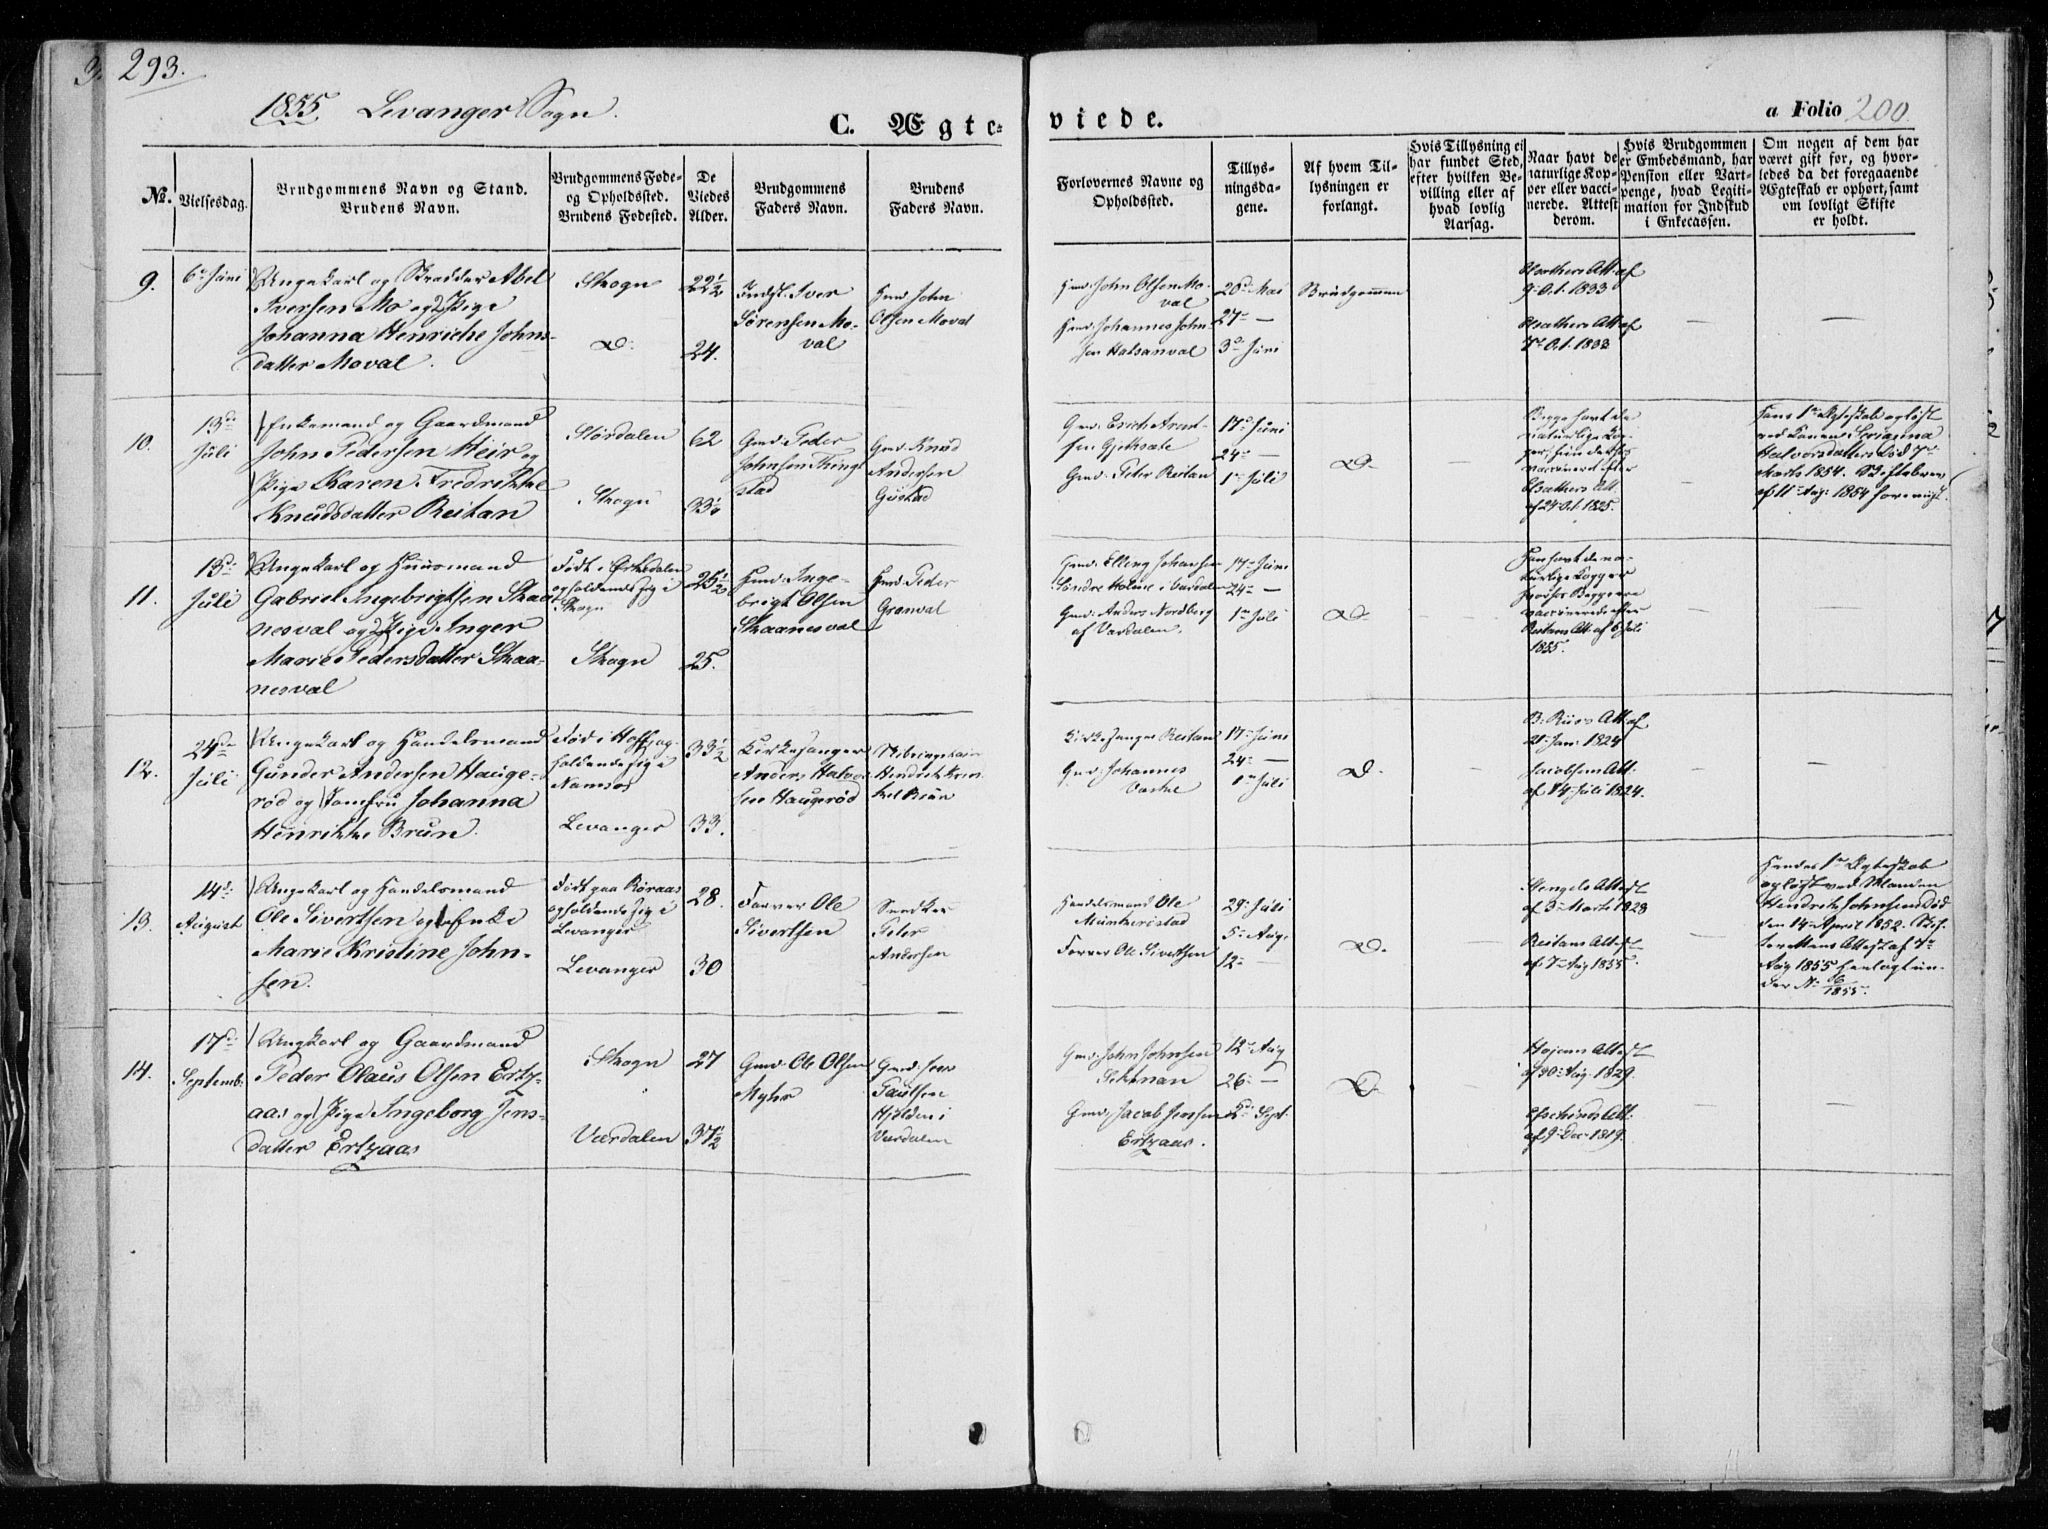 293.
1855. Levanger Sogn.
C. Ægte-
viede.
a Folio 200.
№.
Vielsesdag.
Brudgommens Navn og Stand.
Brudens Navn.
Brudgommens Føde-
og Opholdssted.
Brudens Fødested.
De
Viedes
Alder.
Brudgommens
Faders Navn.
Brudens
Faders Navn.
Forlovernes Navne og
Opholdssted.
Tillys-
ningsda-
gene.
Af hvem Til-
lysningen er
forlangt.
Hvis Tillysning ei
har fundet Sted,
efter hvilken Be-
villing eller af
hvad lovlig
Aarsag.
Naar havt de
naturlige Kop-
per eller vacci-
nerede. Attest
derom.
Hvis Brudgommen
er Embedsmand, har
Pension eller Vart-
penge, hvad Legiti-
mation for Indskud
i Enkecassen.
Om nogen af dem har
været gift før, og hvor-
ledes da det foregaaende
Ægteskab er ophørt, samt
om lovligt Skifte
er holdt.
9.
6te Juni
Ungekarl og Skrædder Abel
Iversen Mo og Pige
Johanna Henriche Johns-
datter Moval.
Skogn
D.
22½
24.
Indst. Iver
Sørensen Mo-
val
Hmd. John
Olsen Moval
Hmd. John Olsen Mo-
val
Hmd. Johannes John-
sen Halsanval
20de Mai
27 —
3de Juni
Brudgommen
Att. af
9 Oct. 1833
Att. af
7de Oct. 1833
—
—
10.
13de
Juli
Enkemand og Gaardmand
John Pedersen Heir og
Pige Karen Fredrikke
Knudsdatter Reitan
Størdalen
Skogn
62
33½
Gmd. Peder
Johnsen Thing-
stad
Gmd. Knud
Andersen
Gustad
Gmd. Erich Arent-
sen
Gmd. Peter Reitan
17de Juni
24 —
1ste Juli
D.
Begge havt de
naturlige Kop-
per, hun derhos
vaccineret efter
Att.
af 24 Oct. 1825.
—
Hans 1ste Ægteskab opløst
ved Konen
Halvorsdatters Død 7de
Marts 1854. Skiftebrev
af 11 Aug. 1854 forevist.
11.
13de
Juli
Ungekarl og Huusmand
Gabriel Ingebrigtsen Skaa-
nesval og Pige Inger
Marie Pedersdatter Skaa-
nesval
Født i Ørkedalen
opholdende sig i
Skogn
Skogn
25½
25.
Hmd. Inge-
brigt Olsen
Skaanesval
Hmd. Peder
Grønval
Gmd. Elling Johansen
Søndre Holme i Værdalen
Gmd. Anders Nordberg
af Værdalen.
17de Juni
24 —
1ste Juli
D.
Han havt de na-
turlige Kopper
hvorfor Begge ere
vaccinerede efter
Reitans Att. af 6 Juli
1855.
—
12.
24de
Juli
Ungekarl og Handelsmand
Gunder Andersen Hauge-
rød og Jomfru Johanna
Henrikke Brun.
Fød i Hoff, op-
holdende sig i
Namsos
Levanger
33½
33.
Kirkesanger
Anders Halvor-
sen Haugerød
Skibscaptain
Hendrik
Brun
Kirkesanger Reitan
Gmd. Johannes
17de Juni
24 —
1ste Juli
D.
—
B. Riis's Att. af
21 Jan. 1824
Jacobsens Att.
af 14 Juli 1824.
—
—
13.
14de
August
Ungekarl og Handelsmand
Ole Sivertsen og Enke
Marie Kristine John-
sen.
Født paa Røraas
opholdende sig i
Levanger
Levanger
28.
30
Farver Ole
Sivertsen
Snedker
Peter
Andersen
Handelsmand Ole
Farver Ole Sivertsen
29 Juli
5 Aug.
12 —
D.
—
Stengels Attest
af 3 Marts 1828
Reitans Attest
af 7 Aug 1855.
—
Hendes 1ste Ægteskab
opløst ved Manden
Hendrik Johnsens Død
den 14 April 1852. Skif-
terettens Attest af 7de
Aug 1855 henlagt un-
der № 16/1855.
14.
17de
Septemb.
Ungkarl og Gaardmand
Peder Olaus Olsen Ertz-
aas og Pige Ingeborg Jens-
datter Ertzaas
Skogn
Værdalen
27
37½
Gmd. Ole Olsen
Myhr
Gmd. Jens
Paulsen
i
Værdalen
Gmd. John Johnsen
Gmd. Jacob Jensen
Ertzaas.
12 Aug
26 —
2de Sept.
D.
—
Højems Attest
af 30 Aug. 1829.
Att.
af 9 Dec. 1819.
—
—